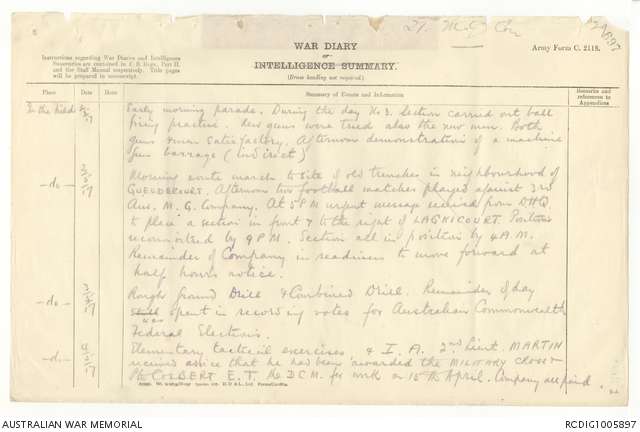 21 M.G. Coy
WAR DIARY
or
INTELLIGENCE SUMMARY.
(Erase heading not required.)
Army Form C. 2118.
Instructions regarding War Diaries and Intelligence
Summaries are contained in F. S. Regs., Part II.
and the Staff Manual respectively. Title pages
will be prepared in manuscript.
Place Date Hour Summary of Events and Information Remarks and references to Appendices
In the Field 1/5/17 Early morning parade. During the day No 3. Section carried out ball
firing practice. New guns were tried also the new men. Both
guns & men satisfactory. Afternoon demonstration of a machine
gun barrage (indirect)
-do- 2/5/17 Morning route march to site of old trenches in neighbourhood of
GUEUDECOURT. Afternoon two football matches played against 3rd
Aus. M. G. Company. At 5 PM urgent message received from DHQ
to place a section in front & to the right of LAGNICOURT. Positions
reconnoitred by 9 P.M. Section all in position by 4 A.M.
Remainder of Company in readiness to move forward at
half hours notice.
-do- 3/5/17 Rough ground Drill & Combined Drill. Remainder of day
was spent in recording votes for Australian Commonwealth
Federal Elections.
-do- 4/5/17 Elementary tactical exercises & I. A. 2nd Lieut. MARTIN
received advice that he had been awarded the MILITARY CROSS &
Pte COLBERT E. T. the DCM. for work on 15th April. Company all paid.
AUSTRALIAN WAR MEMORIAL
RCDIG1005897